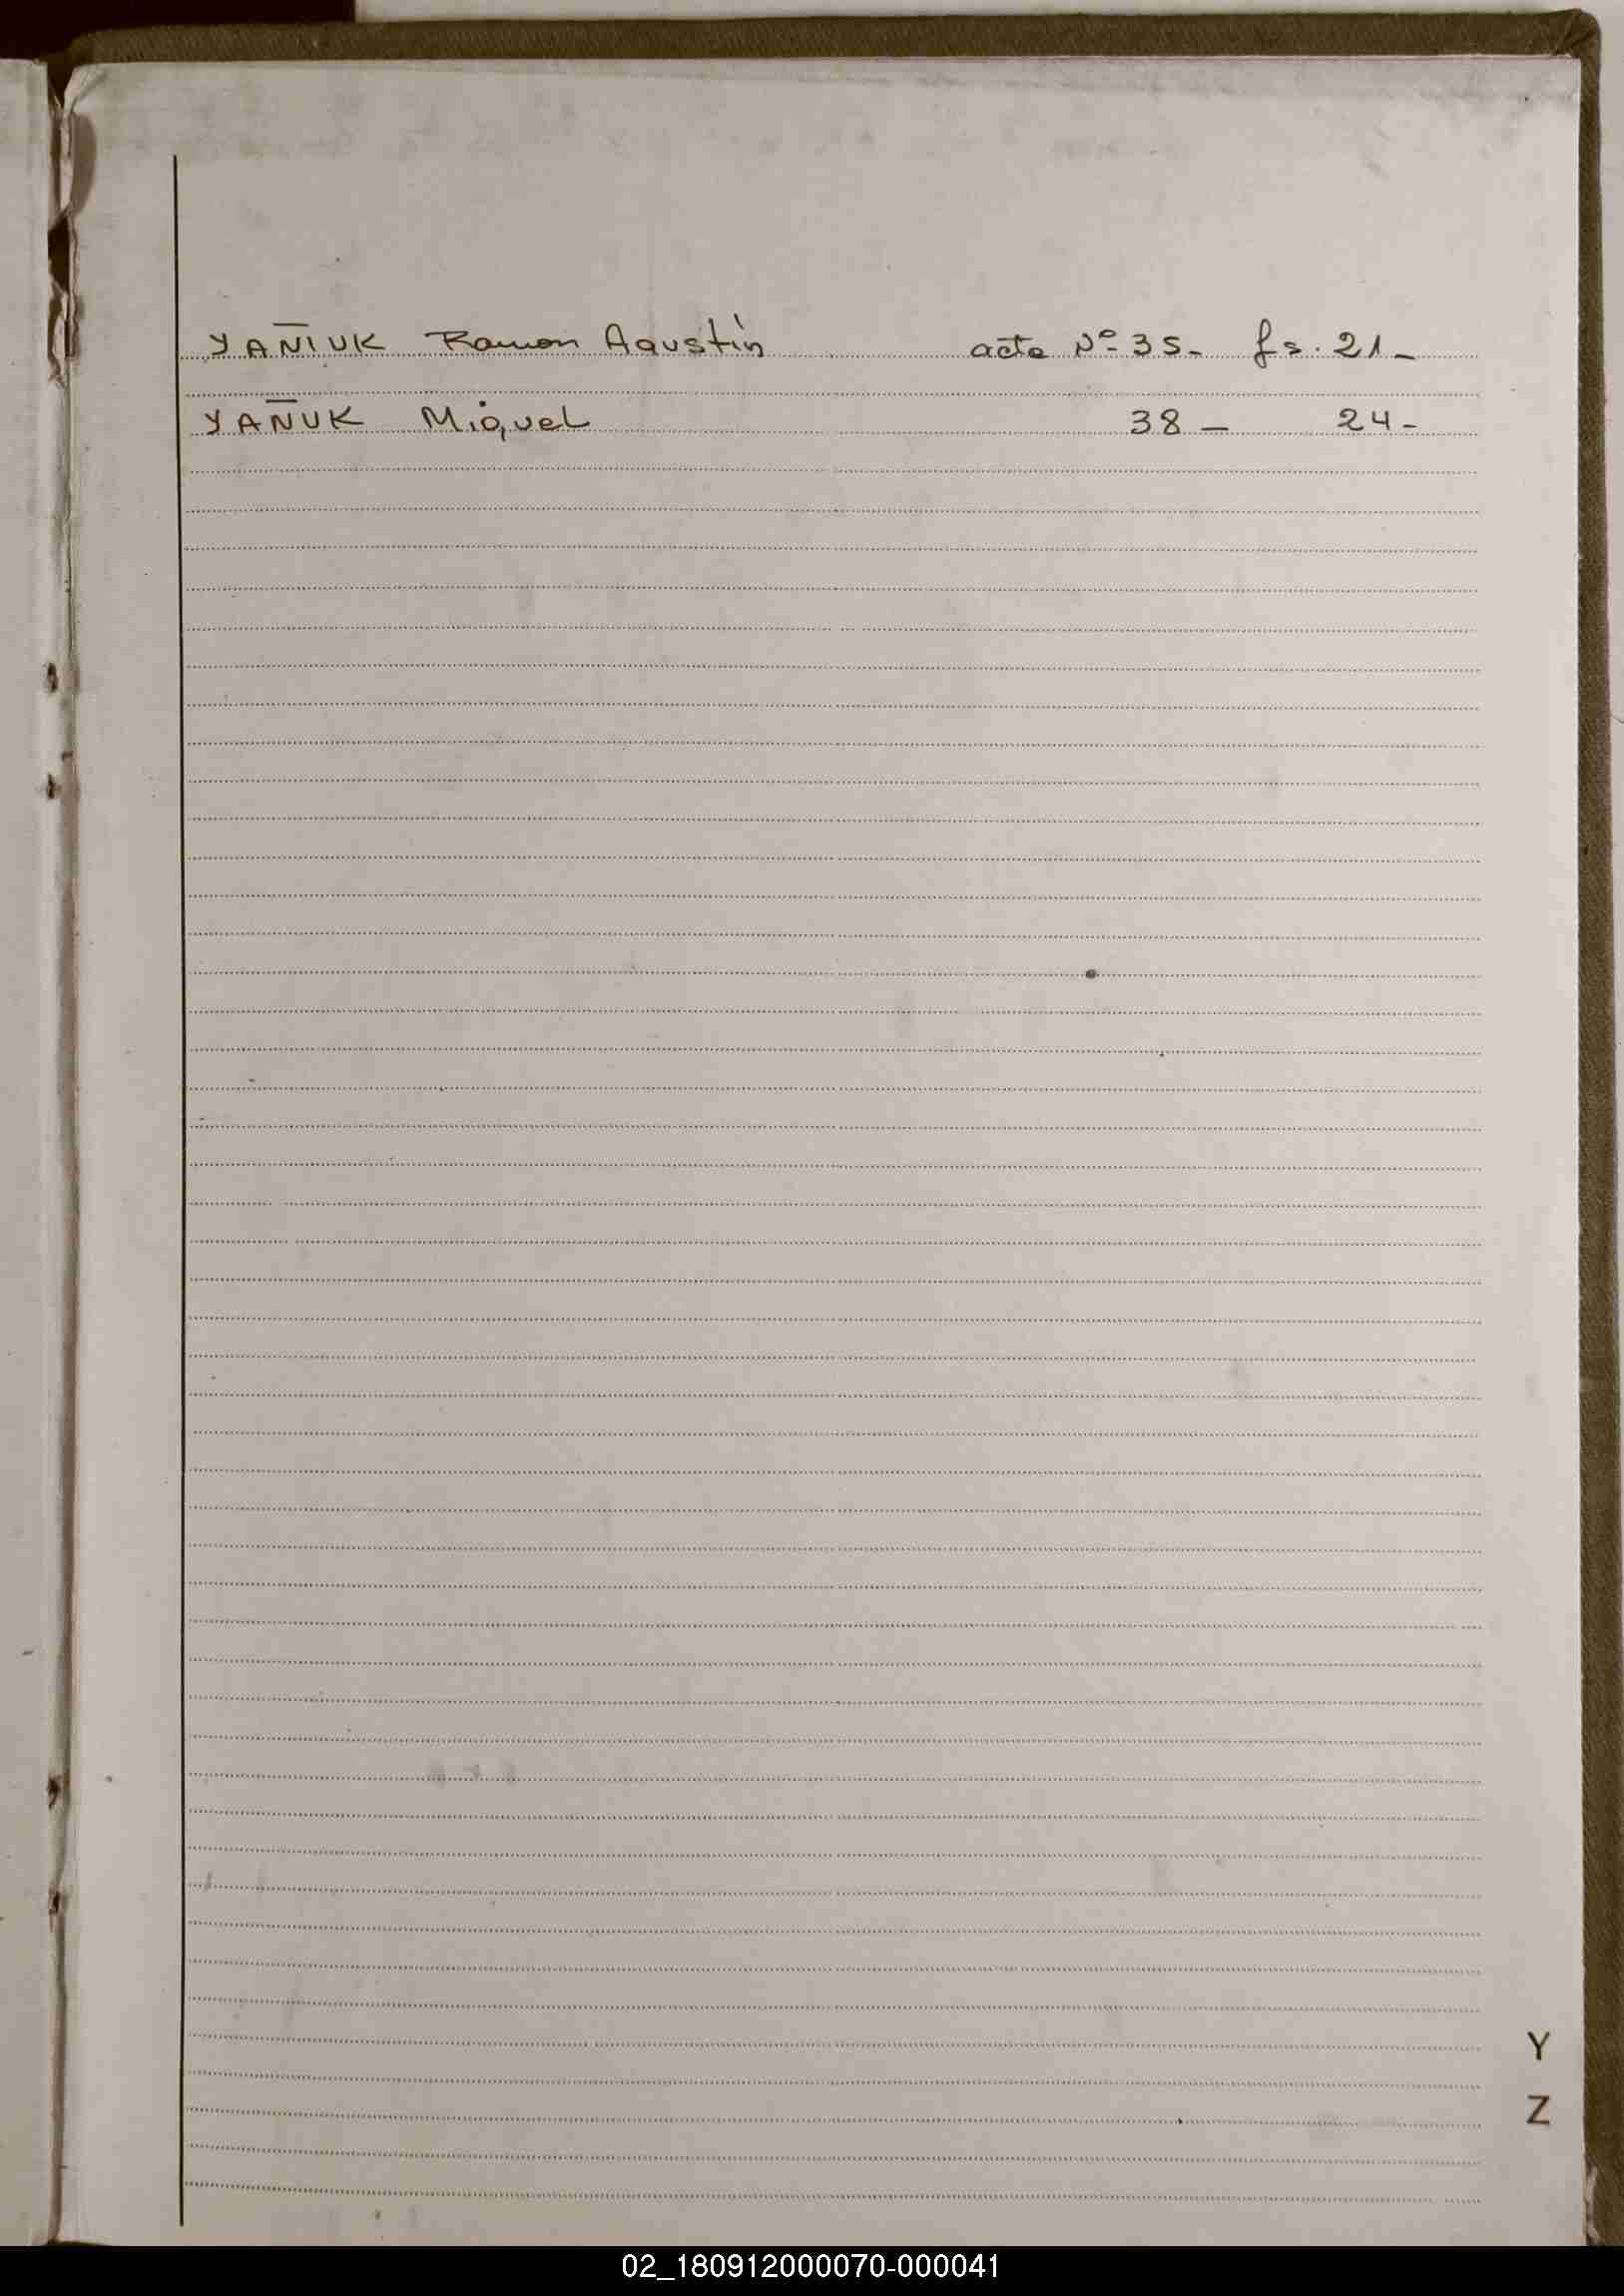 YAÑIUK Ramon Agustín acta Nº 35- fs. 21-
YAÑUK Miguel 38- 24-
Y
Z
02_180912000070-000041